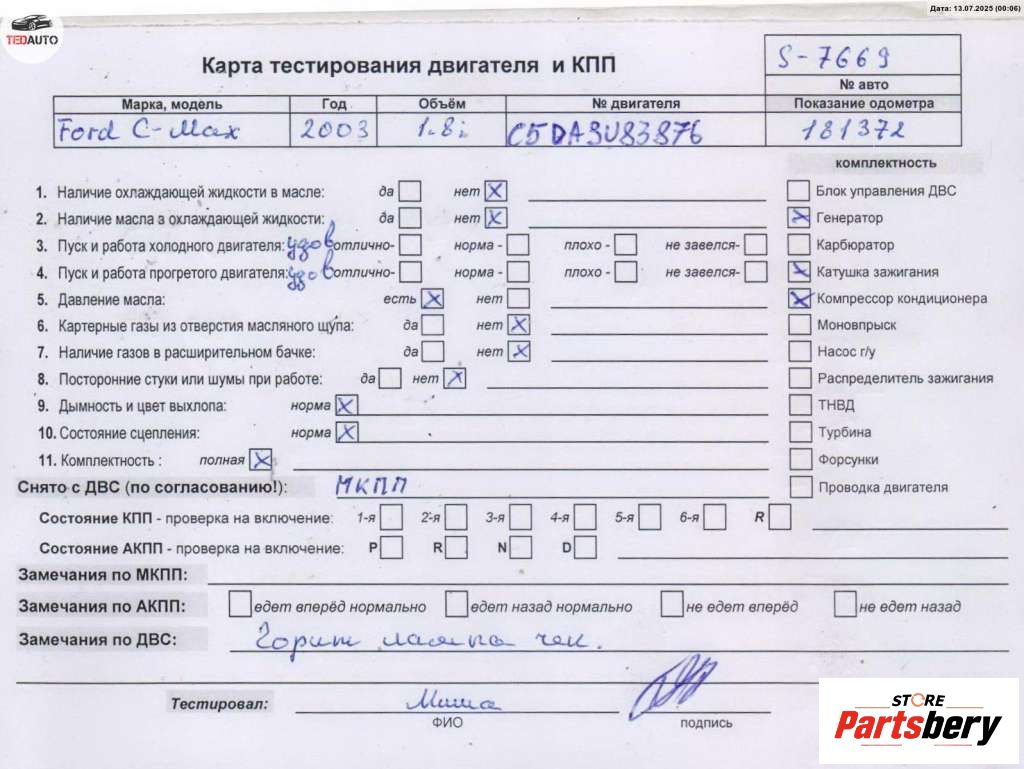 Дата: 13.07.2025 (00:06)
TEDAUTO
Карта тестирования двигателя и КПП
S-7669
№ авто
Марка, модель Год Объём № двигателя Показание одометра
Ford C-Max 2003 1.8i C5DA3U83876 181372
комплектность
1. Наличие охлаждающей жидкости в масле: да нет X Блок управления ДВС
2. Наличие масла в охлаждающей жидкости: да нет X X Генератор
3. Пуск и работа холодного двигателя: удов отлично- норма - плохо - не завелся- Карбюратор
4. Пуск и работа прогретого двигателя: удов отлично- норма - плохо - не завелся- X Катушка зажигания
5. Давление масла: есть X нет X Компрессор кондиционера
6. Картерные газы из отверстия масляного щупа: да нет X Моновпрыск
7. Наличие газов в расширительном бачке: да нет X Насос г/у
8. Посторонние стуки или шумы при работе: да нет X Распределитель зажигания
9. Дымность и цвет выхлопа: норма X ТНВД
10. Состояние сцепления: норма X Турбина
11. Комплектность : полная X Форсунки
Снято с ДВС (по согласованию!): МКПП Проводка двигателя
Состояние КПП - проверка на включение: 1-я 2-я 3-я 4-я 5-я 6-я R
Состояние АКПП - проверка на включение: P R N D
Замечания по МКПП:
Замечания по АКПП: едет вперёд нормально едет назад нормально не едет вперёд не едет назад
Замечания по ДВС: Горит лампа чек.
Тестировал: Миша
ФИО подпись
STORE
Partsbery